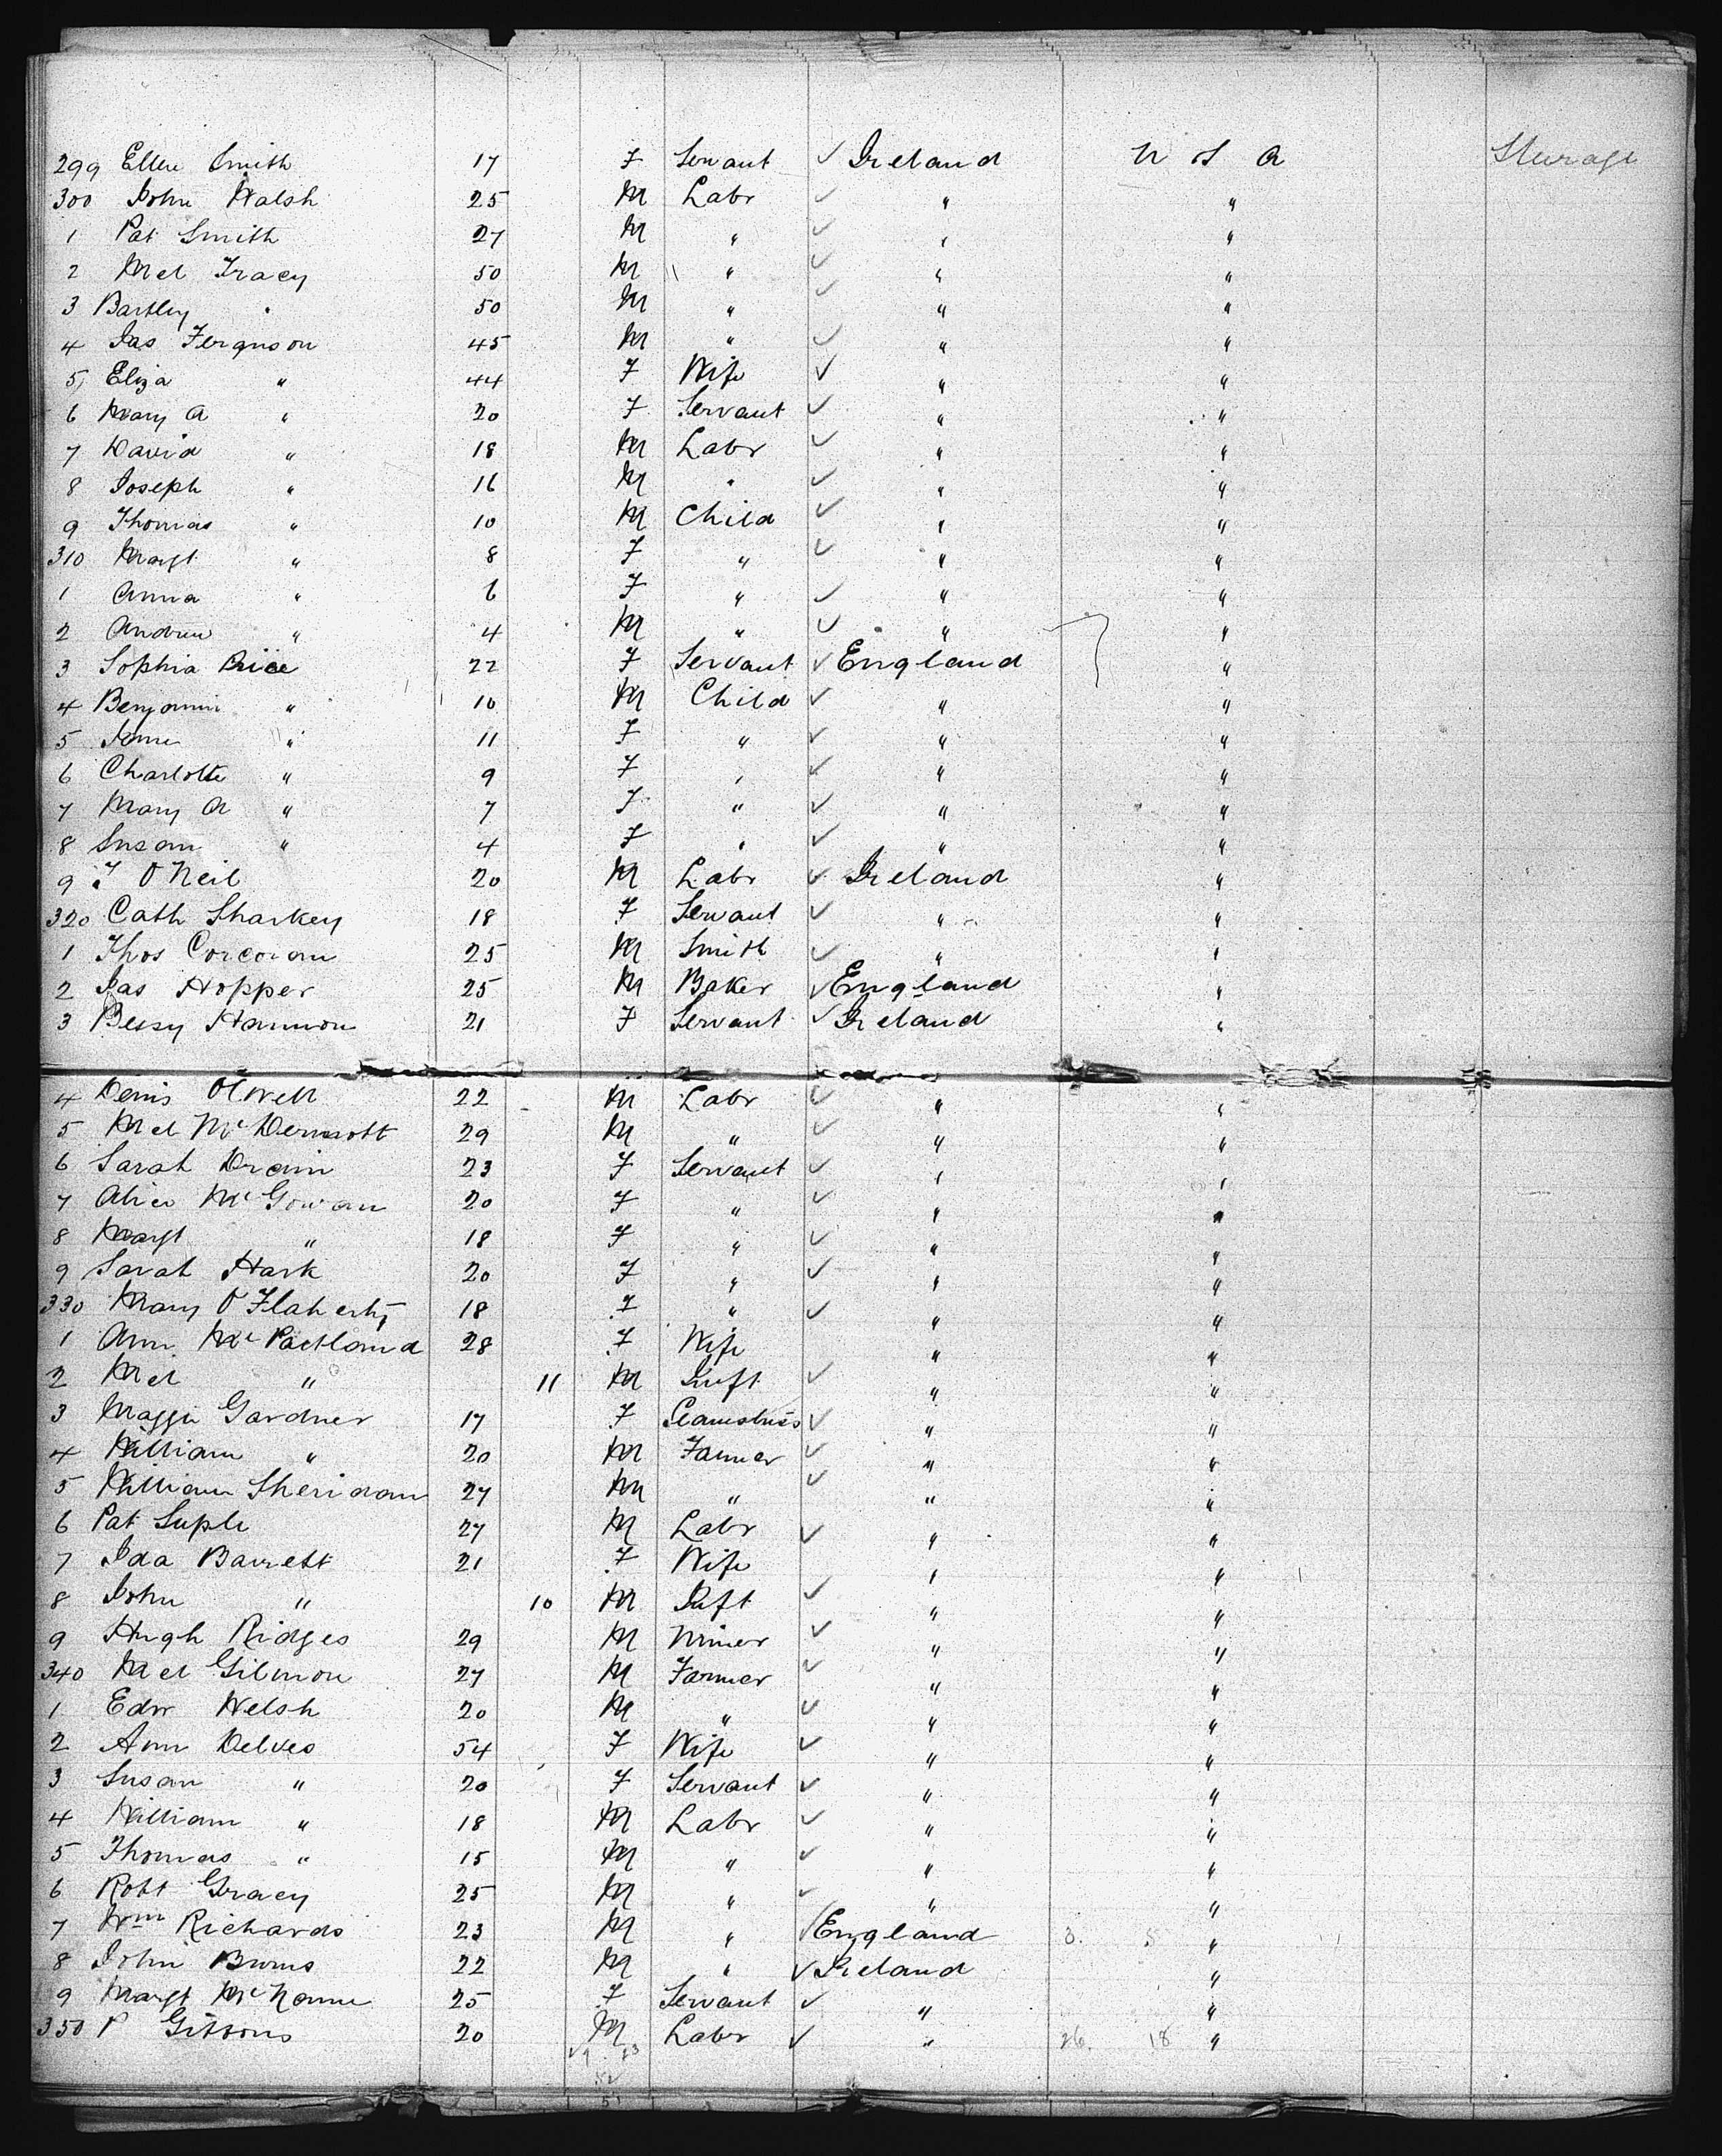 299 Ellen Smith 17 F Servant ✓ Ireland U S A Steerage
300 John Walsh 25 M Labr ✓ " "
1 Pat Smith 27 M " ✓ " "
2 Mcl Tracy 50 M " ✓ " "
3 Bartley " 50 M " ✓ " "
4 Jas Ferguson 45 M " ✓ " "
5 Eliza " 44 F Wife ✓ " "
6 Mary A " 20 F Servant ✓ " "
7 David " 18 M Labr ✓ " "
8 Joseph " 16 M " ✓ " "
9 Thomas " 10 M Child ✓ " "
310 Margt " 8 F " ✓ " "
1 Anna " 6 F " ✓ " "
2 Andrew " 4 M " ✓ " "
3 Sophia Price 22 F Servant ✓ England "
4 Benjamin " 10 M Child ✓ " "
5 Jane " 11 F " ✓ " "
6 Charlotte " 9 F " ✓ " "
7 Mary A " 7 F " ✓ " "
8 Susan " 4 F " ✓ " "
9 O Neil 20 M Labr ✓ Ireland "
320 Cath Sharkey 18 F Servant ✓ " "
1 Thos Corcoran 25 M Smith ✓ " "
2 Jas Hopper 25 M Baker ✓ England "
3 Bessy Hannon 21 F Servant ✓ Ireland "
4 Denis Olwell 22 M Labr ✓ " "
5 Mcl McDermott 29 M " ✓ " "
6 Sarah Drain 23 F Servant ✓ " "
7 Alice McGowan 20 F " ✓ " "
8 Margt " 18 F " ✓ " "
9 Sarah Hark 20 F " ✓ " "
330 Mary O Flaherty 18 F " ✓ " "
1 Ann McPartland 28 F Wife " "
2 Mcl " 11 M Inft ✓ " "
3 Maggie Gardner 17 F Seamstress ✓ " "
4 William " 20 M Farmer ✓ " "
5 William Sheridan 27 M " ✓ " "
6 Pat Suple 27 M Labr ✓ " "
7 Ida Barrett 21 F Wife " "
8 John " 10 M Inft ✓ " "
9 Hugh Ridges 29 M Miner ✓ " "
340 Mcl Gilmon 27 M Farmer ✓ " "
1 Edw Welsh 20 M " ✓ " "
2 Ann Delves 54 F Wife ✓ " "
3 Susan " 20 F Servant ✓ " "
4 William " 18 M Labr ✓ " "
5 Thomas " 15 M " ✓ " "
6 Robt Gracey 25 M " ✓ " "
7 Wm Richards 23 M " ✓ England "
8 John Burns 22 M " ✓ Ireland "
9 Margt 25 F Servant ✓ " "
350 P Gibbons 20 M Labr ✓ " 26. 18 "